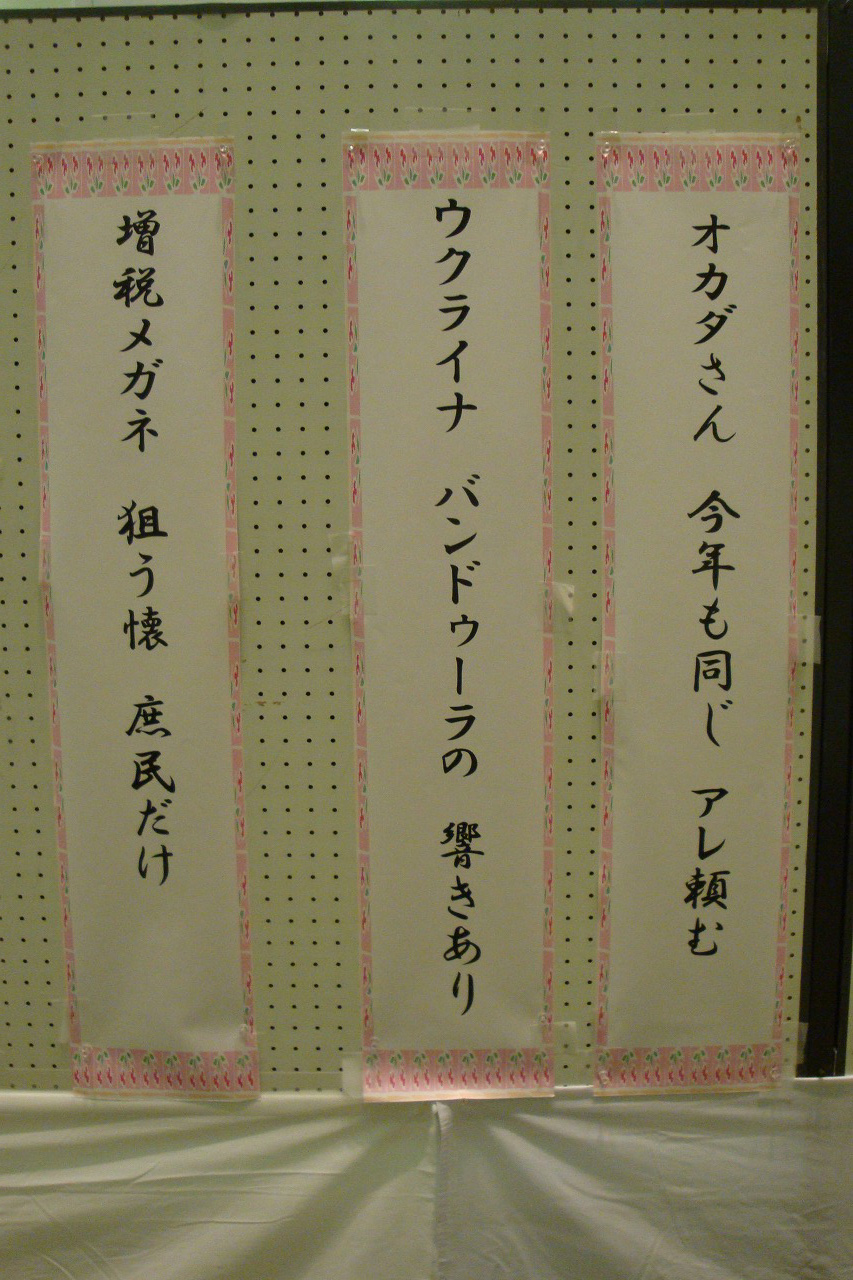 オカダさん　今年も同じ　アレ頼む
ウクライナ　バンドゥーラの　響きあり
増税メガネ　狙う懐　庶民だけ